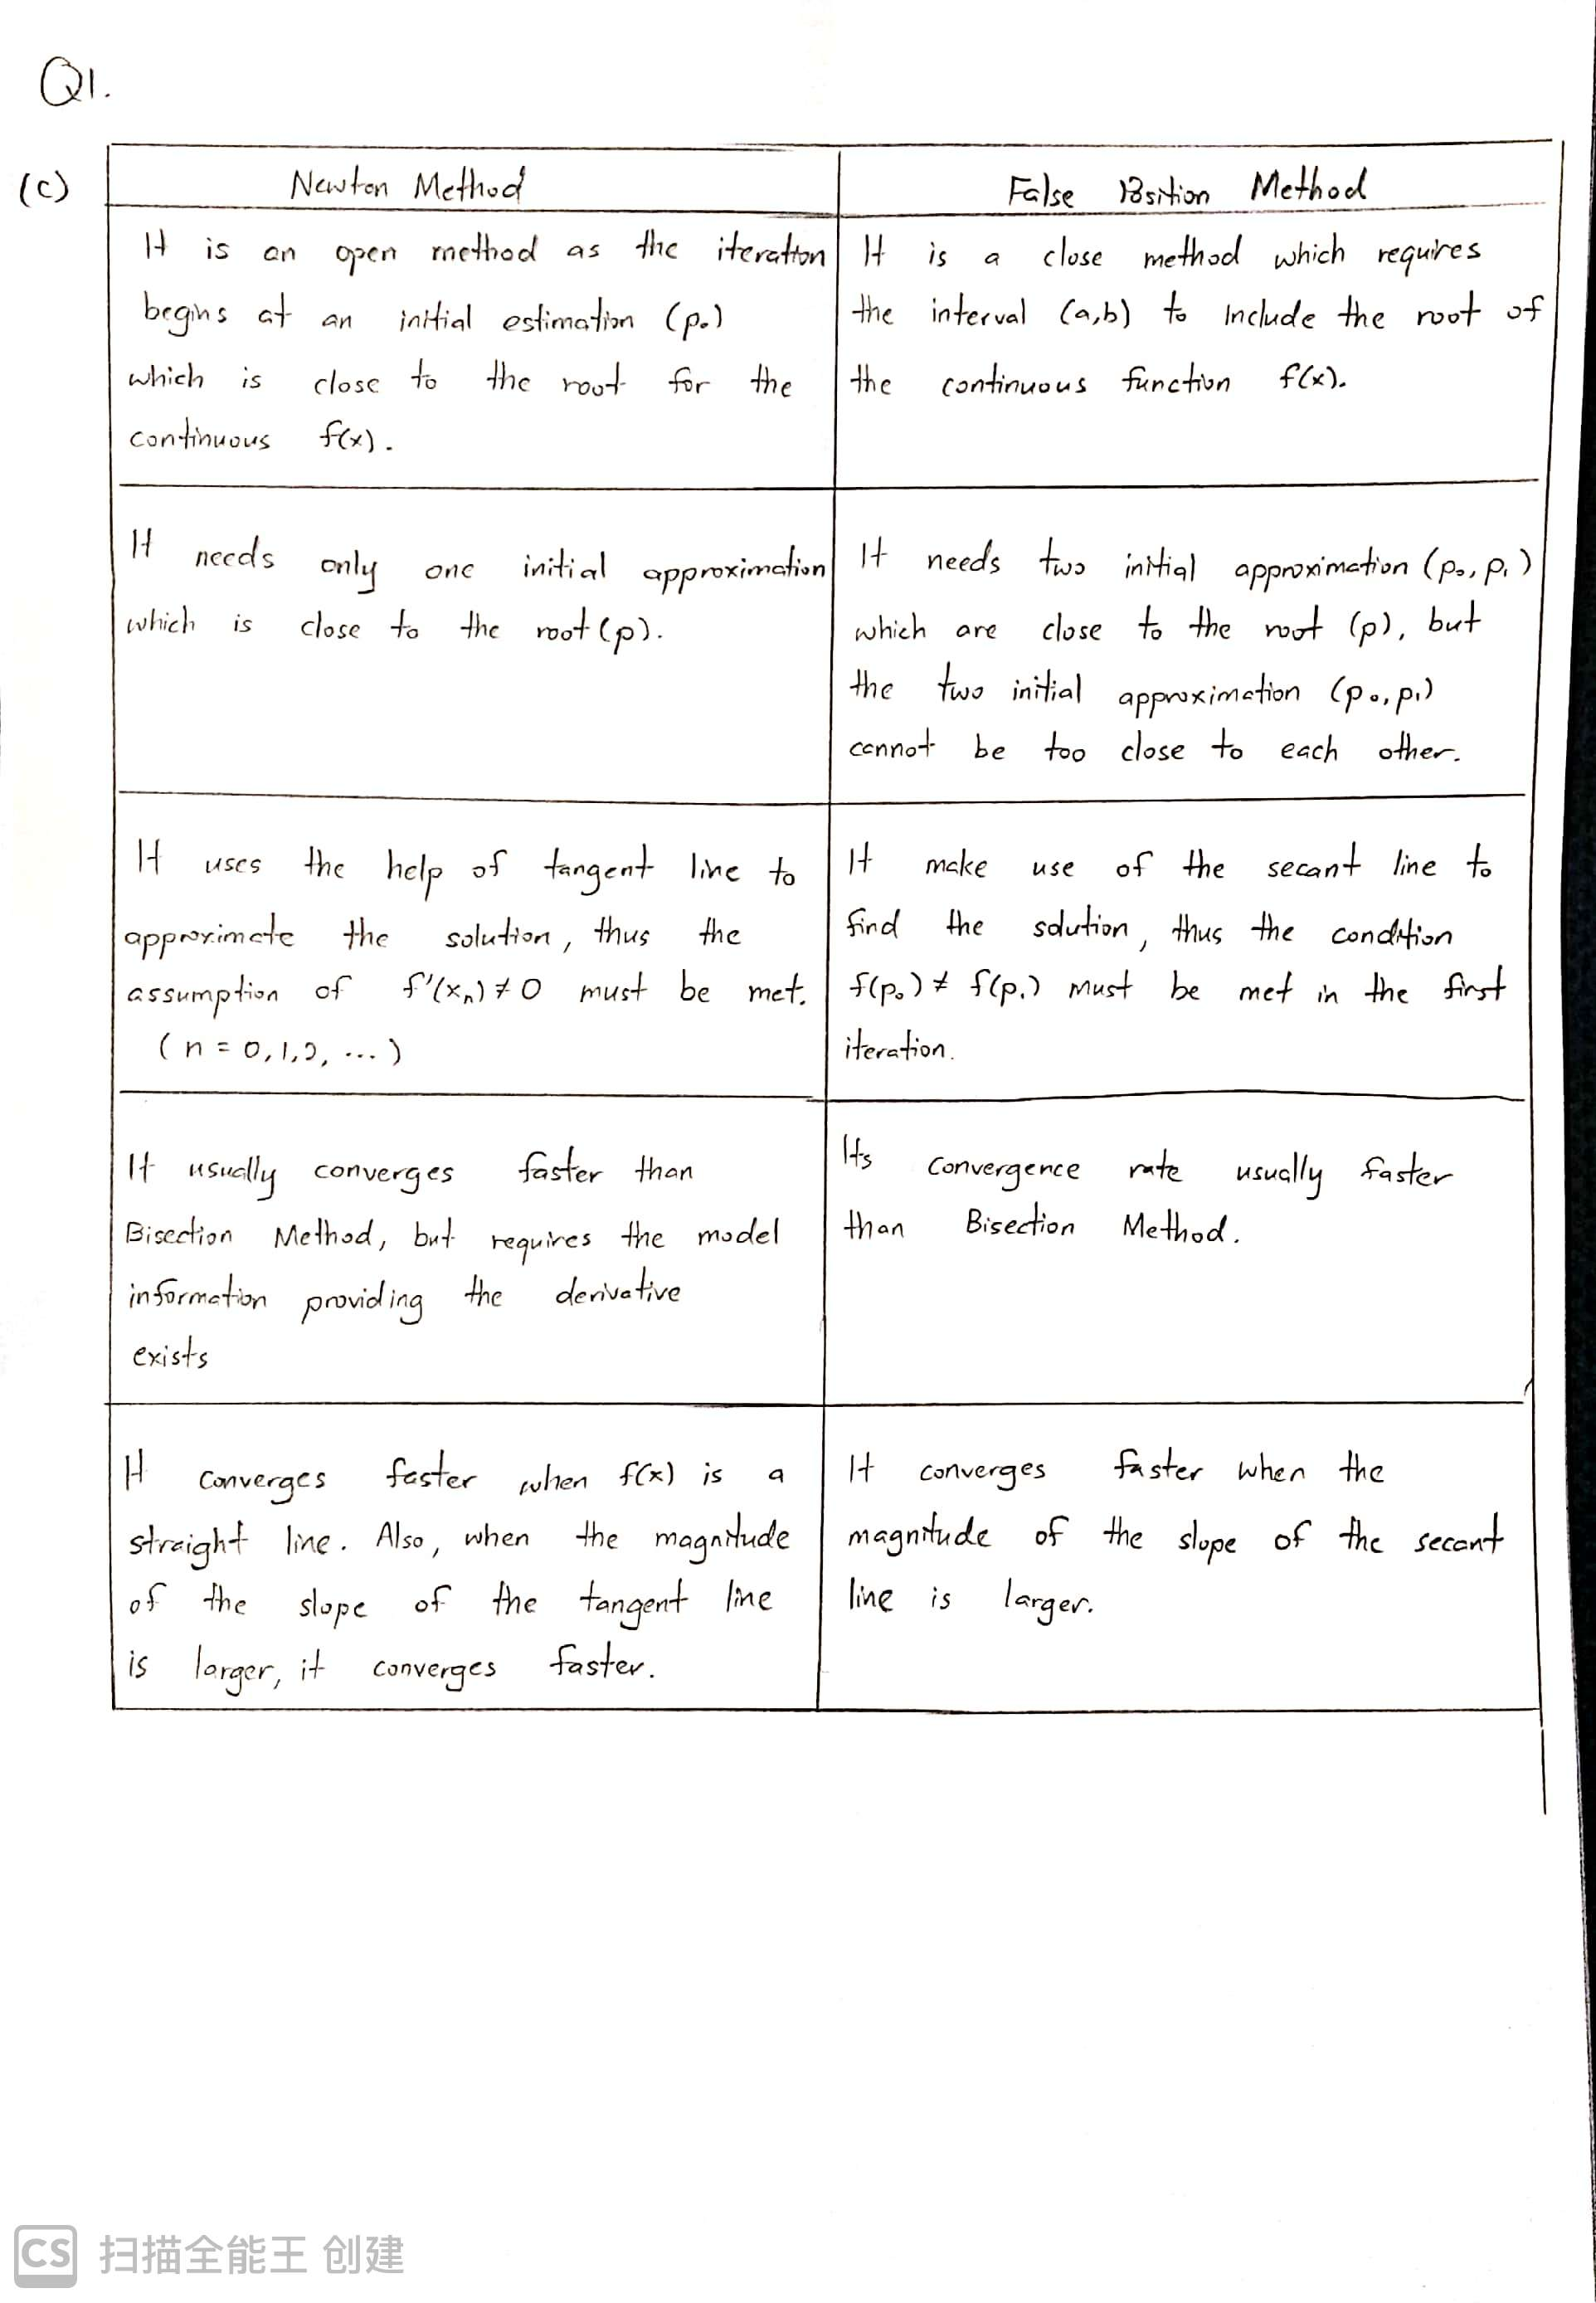 Q1.
(c)
Newton Method
It is an open method as the iteration
begins at an initial estimation (p₀)
which is close to the root for the
continuous f(x).
False Position Method
It is a close method which requires
the interval (a,b) to include the root of
the continuous function f(x).
It needs only one initial approximation
which is close to the root (p).
It needs two initial approximation (p₀, p₁)
which are close to the root (p), but
the two initial approximation (p₀, p₁)
cannot be too close to each other.
It uses the help of tangent line to
approximate the solution, thus the
assumption of f'(xₙ) ≠ 0 must be met.
(n = 0, 1, 2, ...)
It make use of the secant line to
find the solution, thus the condition
f(p₀) ≠ f(p₁) must be met in the first
iteration.
It usually converges faster than
Bisection Method, but requires the model
information providing the derivative
exists
Its convergence rate usually faster
than Bisection Method.
It converges faster when f(x) is a
straight line. Also, when the magnitude
of the slope of the tangent line
is larger, it converges faster.
It converges faster when the
magnitude of the slope of the secant
line is larger.
CS 扫描全能王 创建